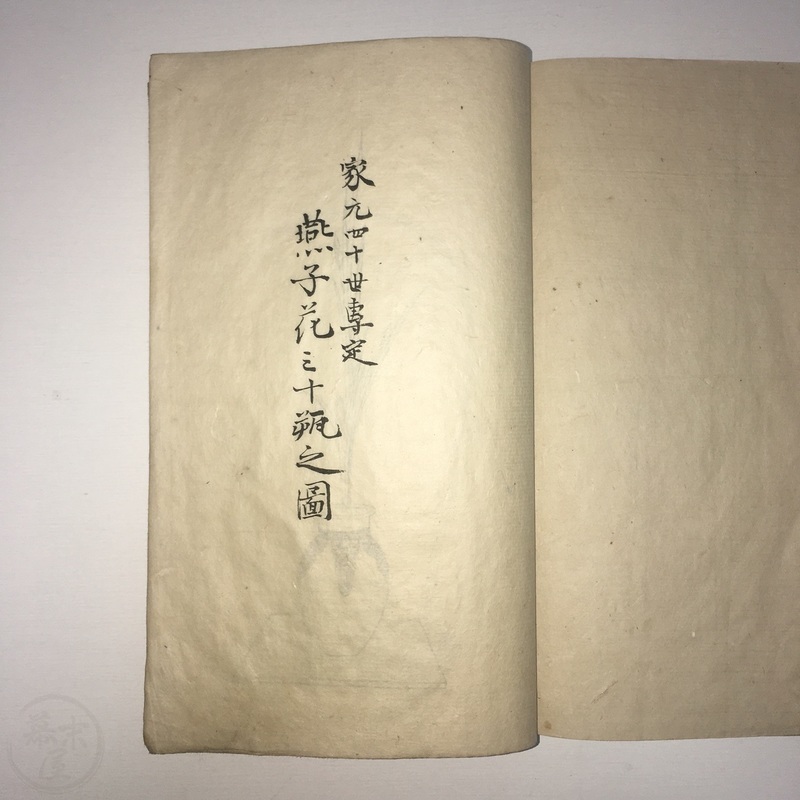 家元四十世專定
燕子花三十瓶之圖
幕末屋